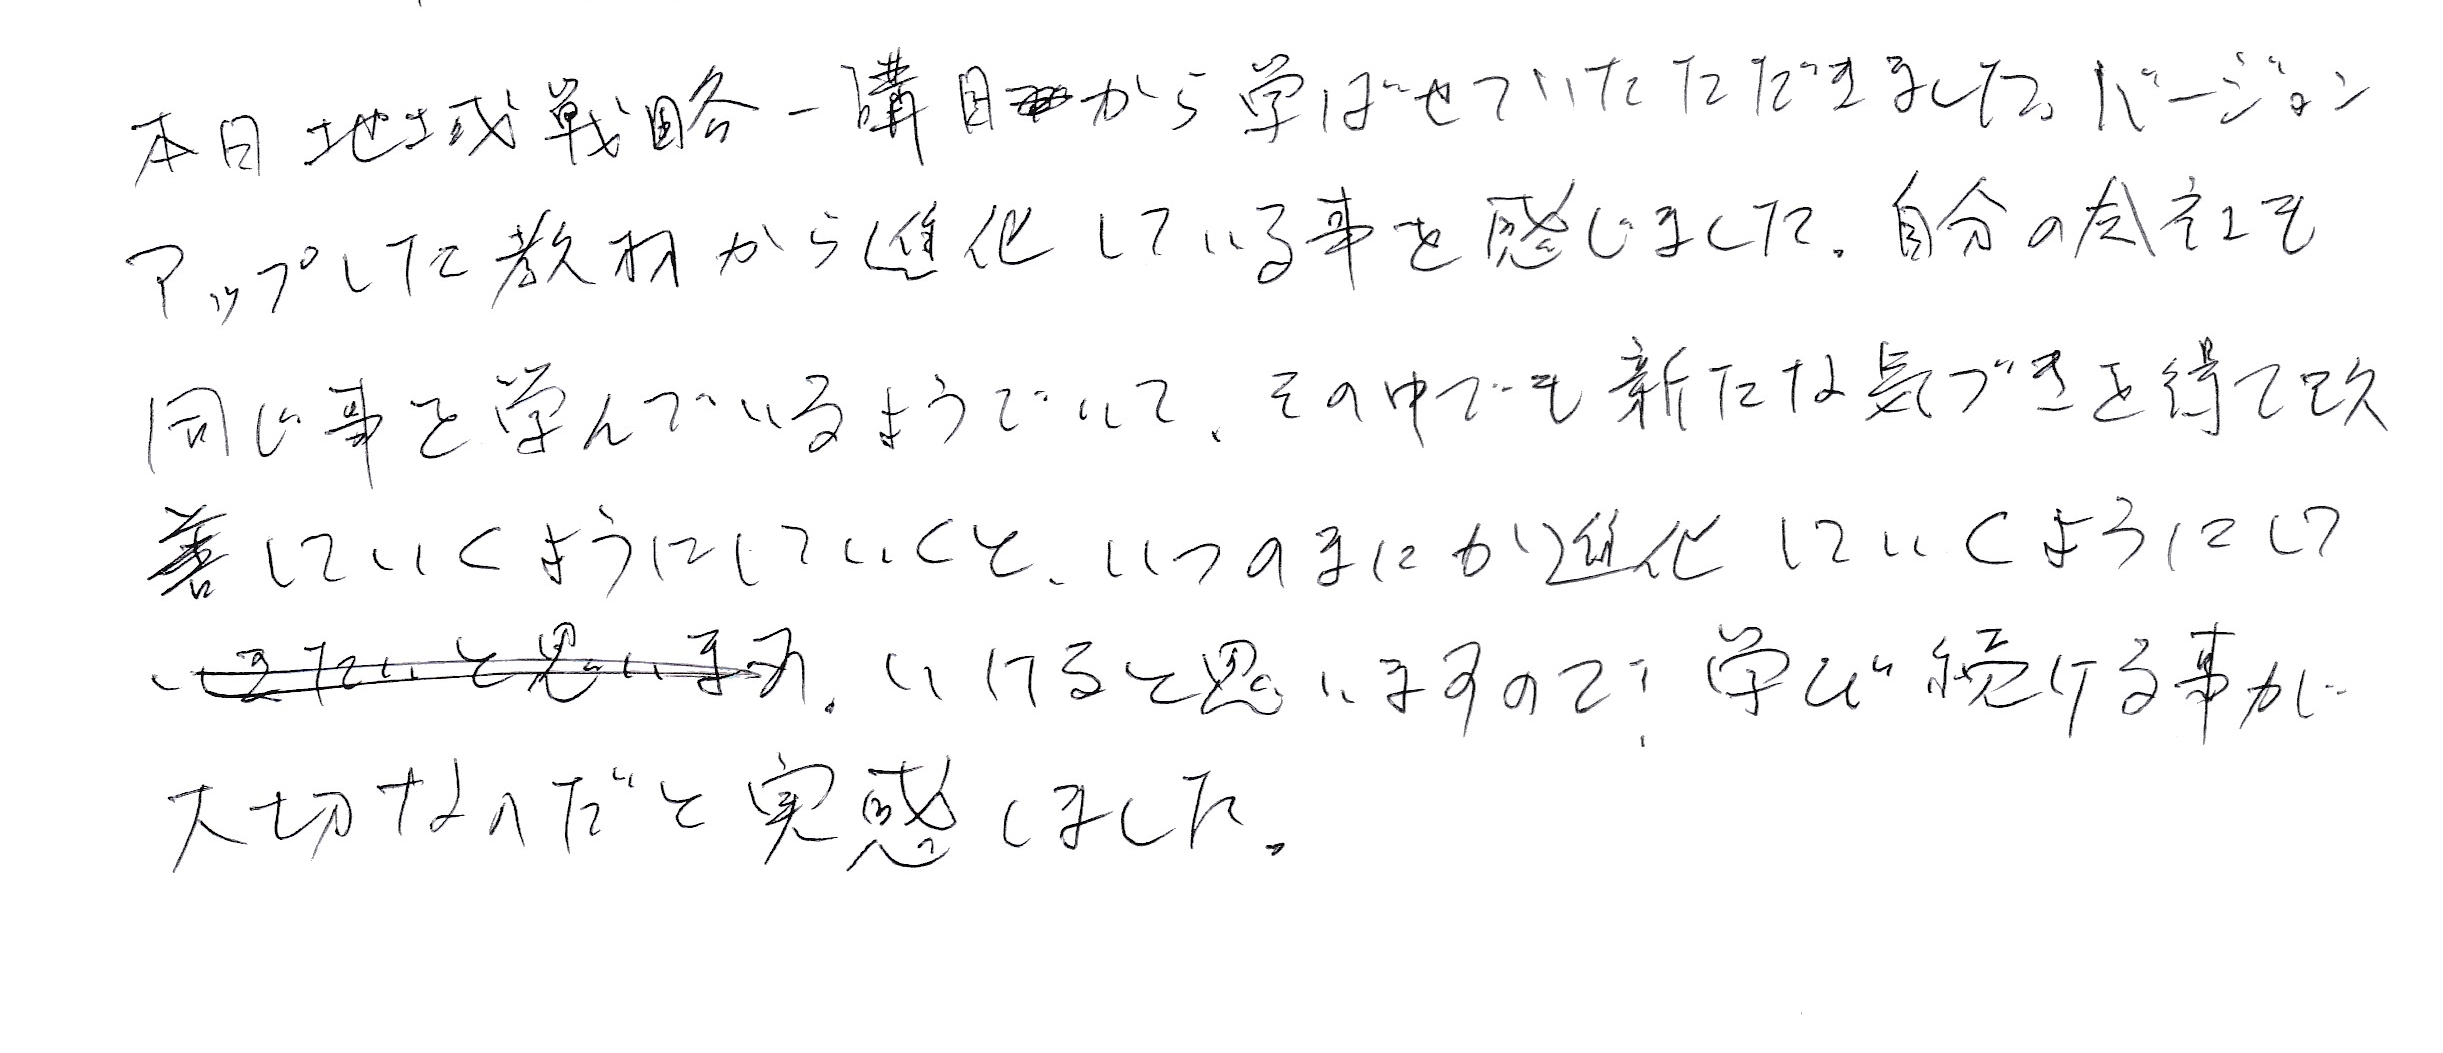 本日地域戦略一購目から学ばせていたただきました。バージョン
アップした教材から進化している事を感じました。自分の会社も
同じ事を学んでいるようでいて、その中でも新たな気づきを得て改
善していくようにしていくと、いつのまにか進化していくようにして
いきたいと思います。いけると思いますので、学び続ける事が
大切なのだと実感しました。